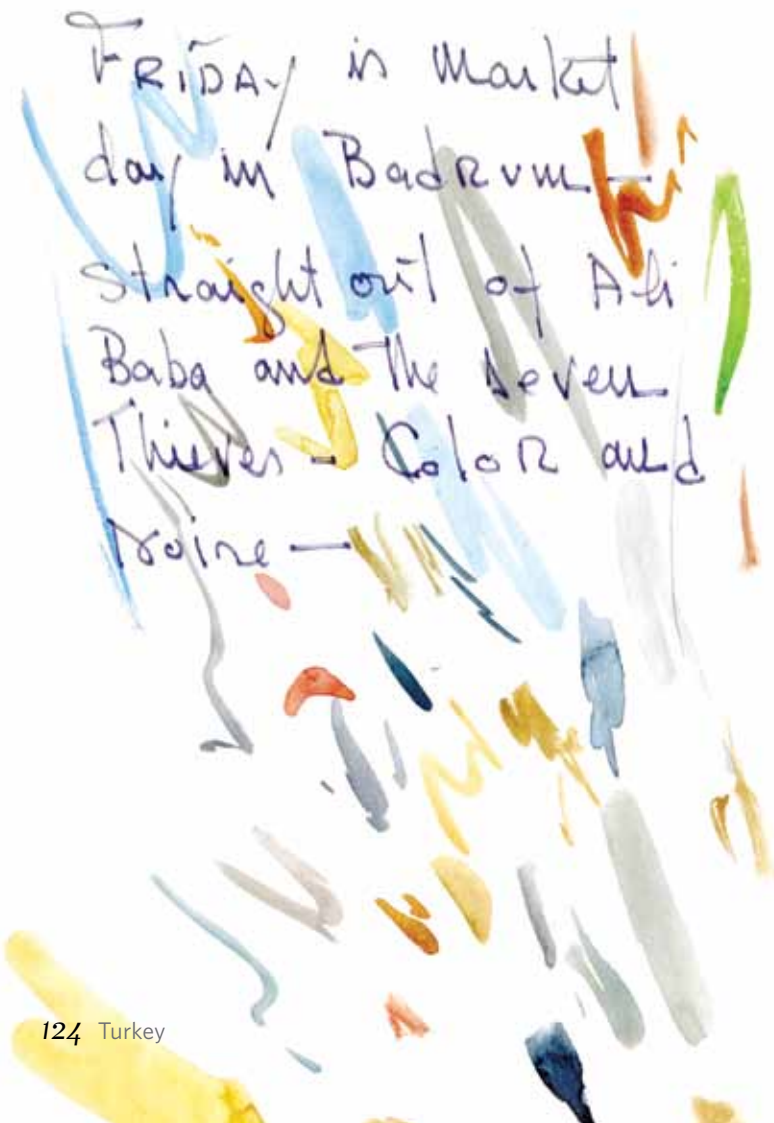 FRIDAY is market
day in Badrum –
straight out of Ali
Baba and The seven
Thieves – Color and
Noise —
124 Turkey